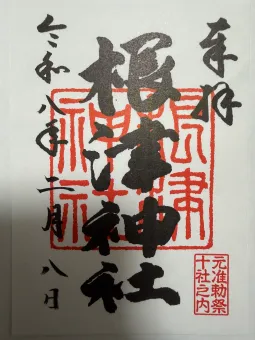 奉拝
根津神社
根津
神社
元准勅祭
十社之内
令和八年二月八日